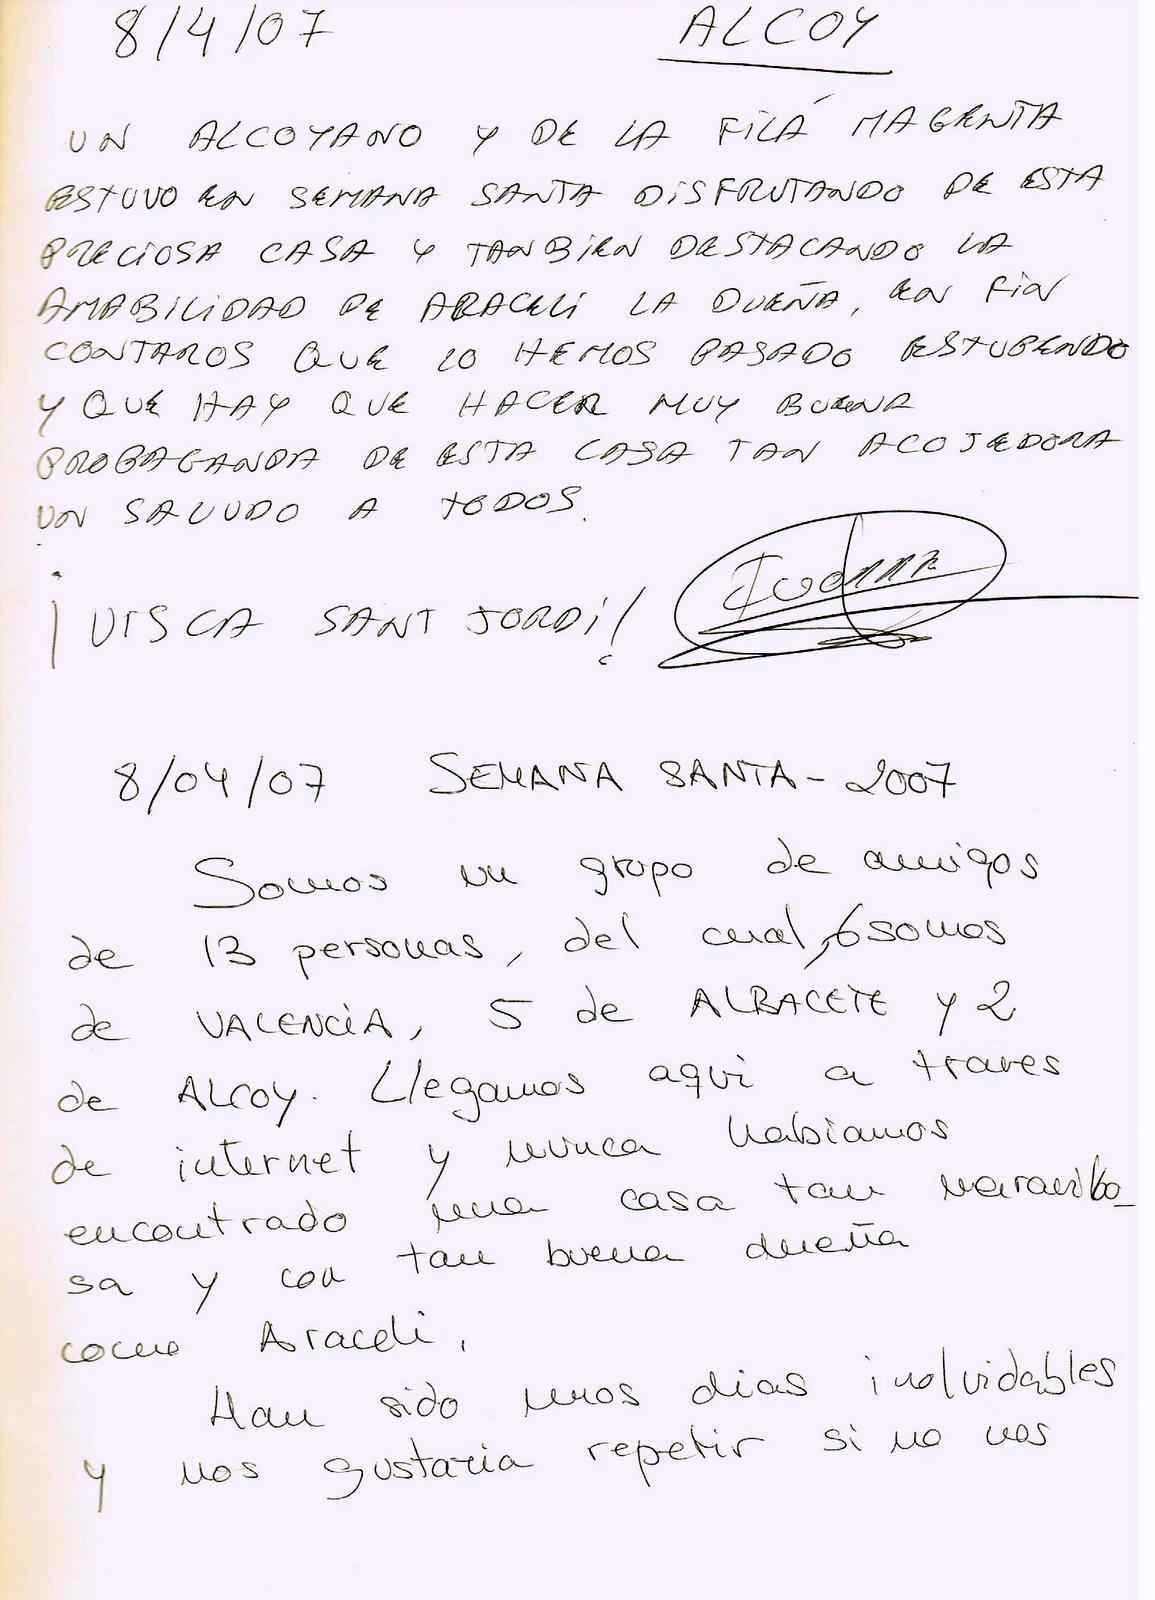 8/4/07 ALCOY
UN ALCOYANO Y DE LA FILÁ MAGENTA
ESTUVO EN SEMANA SANTA DISFRUTANDO DE ESTA
PRECIOSA CASA Y TANBIEN DESTACANDO LA
AMABILIDAD DE ARACELI LA DUEÑA, EN FIN
CONTAROS QUE LO HEMOS PASADO ESTUPENDO
Y QUE HAY QUE HACER MUY BUENA
PROPAGANDA DE ESTA CASA TAN ACOJEDORA
UN SALUDO A TODOS.
¡VISCA SANT JORDI!
8/04/07 SEMANA SANTA - 2007
Somos un grupo de amigos
de 13 personas, del cual, 6 somos
de VALENCIA, 5 de ALBACETE y 2
de ALCOY. Llegamos aqui a traves
de internet y nunca habiamos
encontrado una casa tan maravillo-
sa y con tan buena dueña
como Araceli.
Han sido unos dias inolvidables
y nos gustaria repetir si no nos